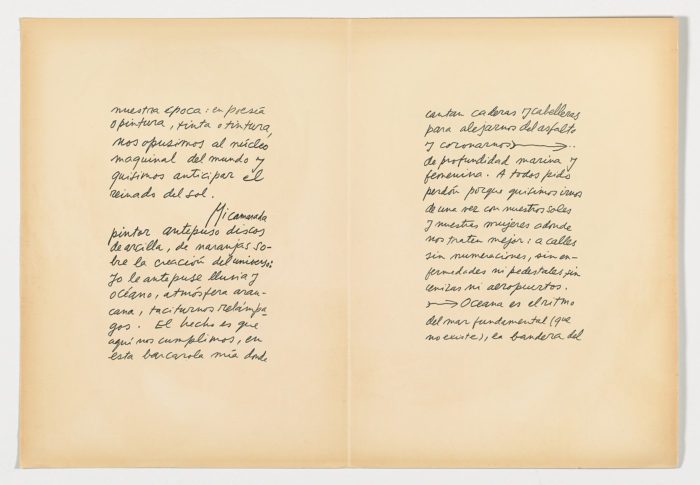 nuestra época: en poesía
o pintura, tinta o tintura,
nos opusimos al núcleo
maquinal del mundo y
quisimos anticipar el
reinado del sol.
Mi camarada
pintor antepuso discos
de arcilla, de naranjas so-
bre la creación del universo:
yo le antepuse lluvia y
océano, atmósfera arau-
cana, taciturnos relámpa-
gos. El hecho es que
aquí nos cumplimos, en
esta barcarola mía donde
cantan caderas y cabelleras
para alejarnos del asfalto
y coronarnos
de profundidad marina y
femenina. A todos pido
perdón porque quisimos irnos
de una vez con nuestros soles
y nuestras mujeres adonde
nos traten mejor: a calles
sin numeraciones, sin en-
fermedades ni pedestales, sin
cenizas ni aeropuertos.
Oceana es el ritmo
del mar fundamental (que
no existe), la bandera del